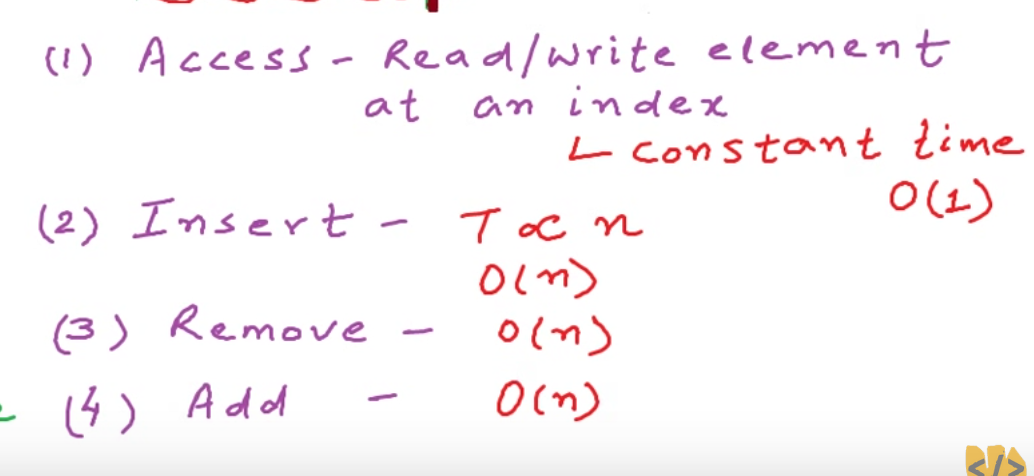 (1) Access - Read/write element
at an index
∟ constant time
O(1)
(2) Insert - T ∝ n
O(n)
(3) Remove - O(n)
(4) Add - O(n)
<//>